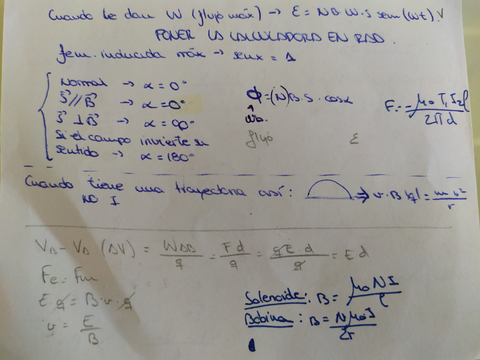 Cuando te dan W (flujo máx) → ε = N B W · S sen (wt) V
PONER LA CALCULADORA EN RAD.
fem. inducida máx → senα = 1
Normal → α = 0°
S // B → α = 0°
S ⊥ B → α = 90°
Si el campo invierte su
sentido → α = 180°
Φ = (N) B · S · cosα
Wb.
flujo
ε
F = μ₀ I₁ I₂ l / 2πd
Cuando tiene una trayectoria así: ⇒ v · B |q| = m v² / r
NO I
V_B - V_A (ΔV) = W_AB / q = F d / q = q E · d / q = E d
Fe = Fm
E q = B · v · q
v = E / B
Solenoide: B = μ₀ N I / l
Bobina: B = N μ₀ I / 2r